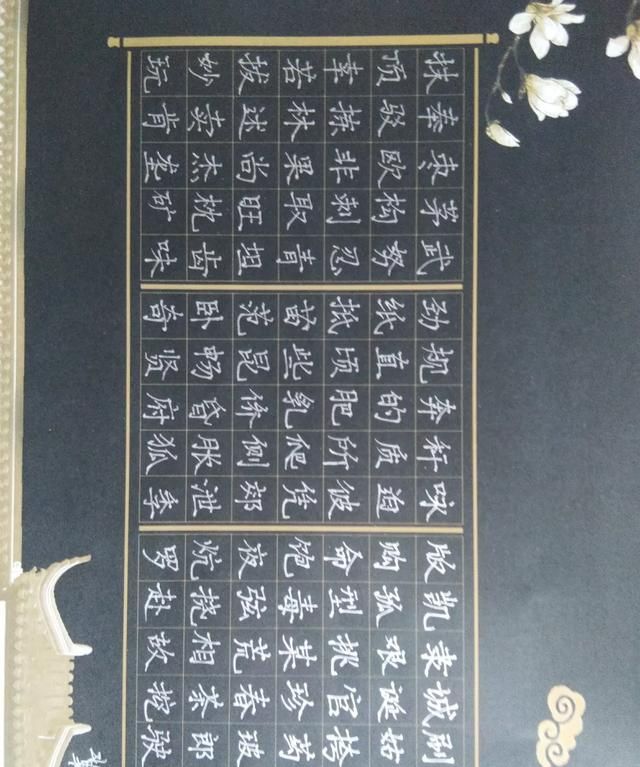 抹奉枣茅武劲规奔秆咏版凯秉城刷
顶驳欧构努纸直的质迫购孤艰诞姑
幸拣非刺忍抵顷肥所彼命型挑官挎
若林果取青苗些乳爬凭饱毒某珍药
拔述尚旺坦范昆侨侧郊夜弦荒春玻
妙卖杰枕齿卧畅昏胀泄炕挠相茶郎
玩肯垄矿味奇贤府狐季罗赴故挖驶